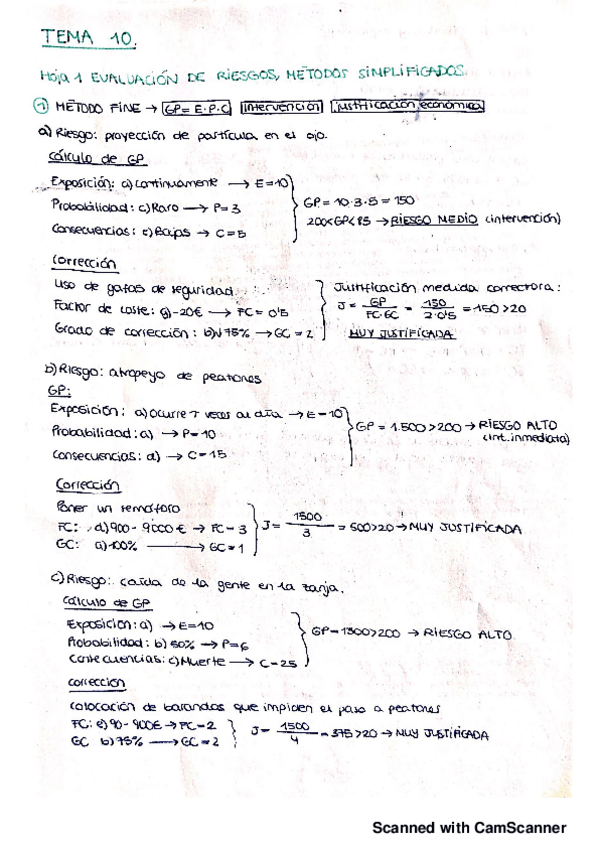 TEMA 10.
Hoja 1 EVALUACIÓN DE RIESGOS, METODOS SIMPLIFICADOS.
1 METODO FINE → GP = E·P·C Intervención Justificación económica
a) Riesgo: proyección de partícula en el ojo.
Cálculo de GP.
Exposición: a) Continuamente → E=10
Probabilidad: c) Raro → P=3
Consecuencias: e) Bajas → C=5
GP = 10·3·5 = 150
200<GP<85 → RIESGO MEDIO (intervención)
Corrección
Uso de gafas de seguridad.
Factor de coste: g) -20€ → FC = 0'5
Grado de corrección: b) 75% → GC = 2
Justificación medida correctora:
J = GP / FC·GC = 150 / 2·0'5 = 150 > 20
MUY JUSTIFICADA
b) Riesgo: atropeyo de peatones
GP:
Exposición: a) Ocurre 7 veces al día → E=10
Probabilidad: a) → P=10
Consecuencias: d) → C=15
GP = 1.500 > 200 → RIESGO ALTO
(int. inmediata)
Corrección
Poner un semáforo
FC: d) 900 - 9000€ → FC=3
GC: a) 100% → GC=1
J = 1500 / 3 = 500>20 → MUY JUSTIFICADA
c) Riesgo: caída de la gente en la zanja.
Cálculo de GP
Exposición: a) → E=10
Probabilidad: b) 50% → P=6
Consecuencias: c) Muerte → C=25
GP=1500>200 → RIESGO ALTO.
Corrección
Colocación de barandas que impiden el paso a peatones
FC: e) 90-900€ → FC=2
GC b) 75% → GC=2
J = 1500 / 4 = 375>20 → MUY JUSTIFICADA
Scanned with CamScanner